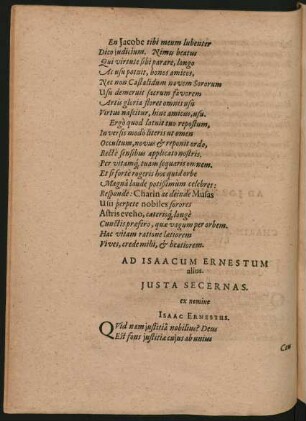 En Jacobe tibi meum lubenter
Dico judicium. Nimis beatus
Qui virtute sibi parare, longo
Ac usu potuit, bonos amicos,
Nec non Castalidum novem Sororum
Usu demeruit sacrum favorem
Artis gloria floret omnis usu
Virtus nascitur, hinc amicus, usu.
Ergò quod latuit tuo repostum,
In versis modò literis ut omen
Occultum, novus & reponit ordo,
Rectè sensibus applicato nostris.
Per vitamq́, tuam sequaris omnem.
Et si fortè rogeris hoc quid orbe
Magnâ laude potissimum celebret:
Responde: Charin ac deinde Musas
Uni perpete nobiles sorores
Astris eveho, caterisq́, longè
Cunctis præfero, quæ vagum per orbem.
Hac vitam ratione latiorem
Vives, crede mihi, & beatiorem.
AD ISAACUM ERNESTUM
alius.
JUSTA SECERNAS.
ex nomine
ISAAC ERNESTUS.
QVid nam justitiâ nobilius? Deus
Est fons justitiæ cujus ab unius